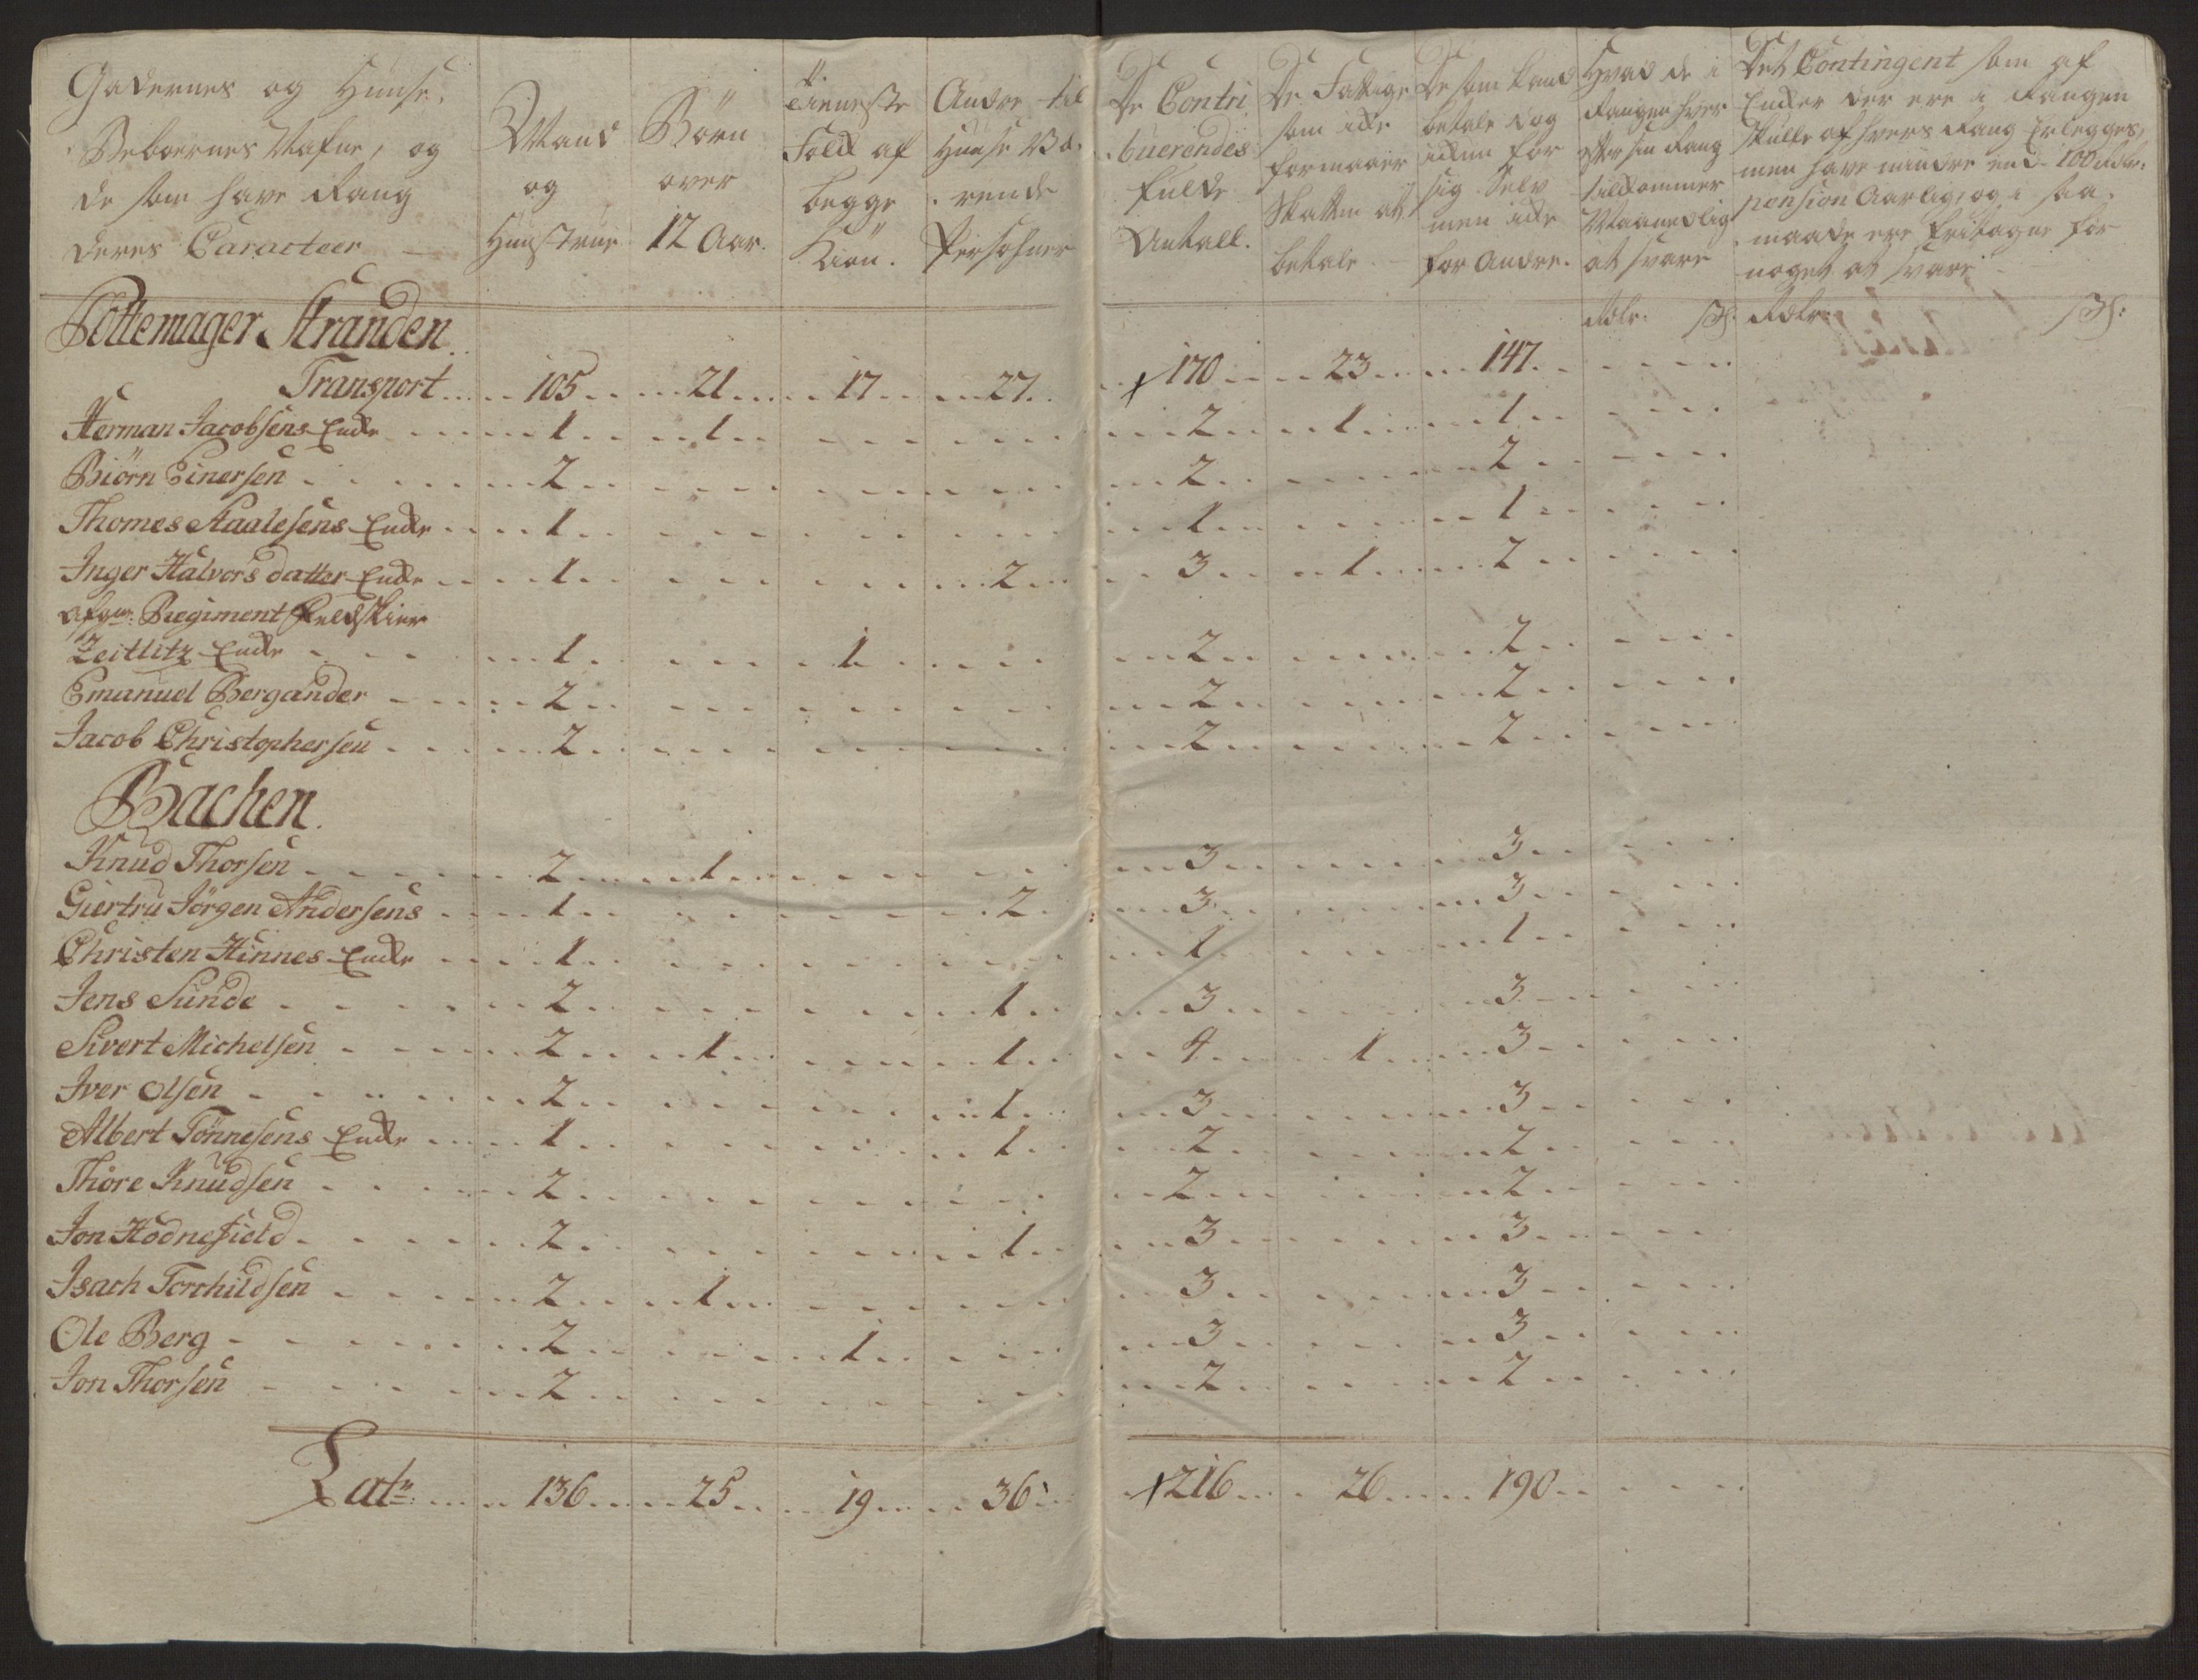 Gadernes og Huuse,
Beboernes Nafne, og
de som have Rang
deres Caracteer
Mand
og
Hustrue
Börn
over
12 Aar.
Tieneste
Folk af
begge
Kiön.
Andre til
Huuse Væ-
rende
Persohner
De Contri
buerendes
fulde
Antall.
De Fattige
som icke
formaaer
Skatten at
betale
De som kand
betale dog
icken for
sig Selv
men icke
for Andre.
Hvad de i
Rangen hver
efter sin Rang
tilkommer
Maanedlig
at svare
Det Contingent som af
Encker der ere i Rangen
skulle af hvers Rang Erlegges,
men have mindre end 100 Rdlr:
pension Aarlig, og i saa-
maade ere fritagne for
noget at svare
Rdlr: ß: Rdlr: ß:
Pottemager Stranden.
Transport 105 21 17 27. 170 23 147.
Herman Jacobsens Encke 1 1 2 1 1
Biörn Einersen 2 2 2
Thomes Aaalesens Encke 1 1 1
Inger Halvors datter Encke 1 2 3 1 2
afgne: Regiment Feldskier
Zeitlitz Encke 1 1 2 2
Emanuel Bergander 2 2 2
Jacob Christophersen 2 2 2
Bachen.
Knud Thorsen 2 1 3 3
Giertru Jörgen Andersens 1 2 3 3
Christen Hinnes Encke 1 1 1
Jens Sunde 2 1 3 3
Sivert Michelsen 2 1 1 4 1 3
Iver Olsen 2 1 3 3
Albert Tönnesens Encke 1 1 2 2
Thore Knudsen 2 2 2
Jon Hodnefield 2 1 3 3
Isach Torchildsen 2 1 3 3
Ole Berg 2 1 3 3
Jon Thorsen 2 2 2
Lats 136 25 19 36 216 26 190